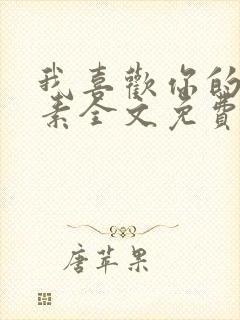 我喜歡你的
素全文免費
唐苹果